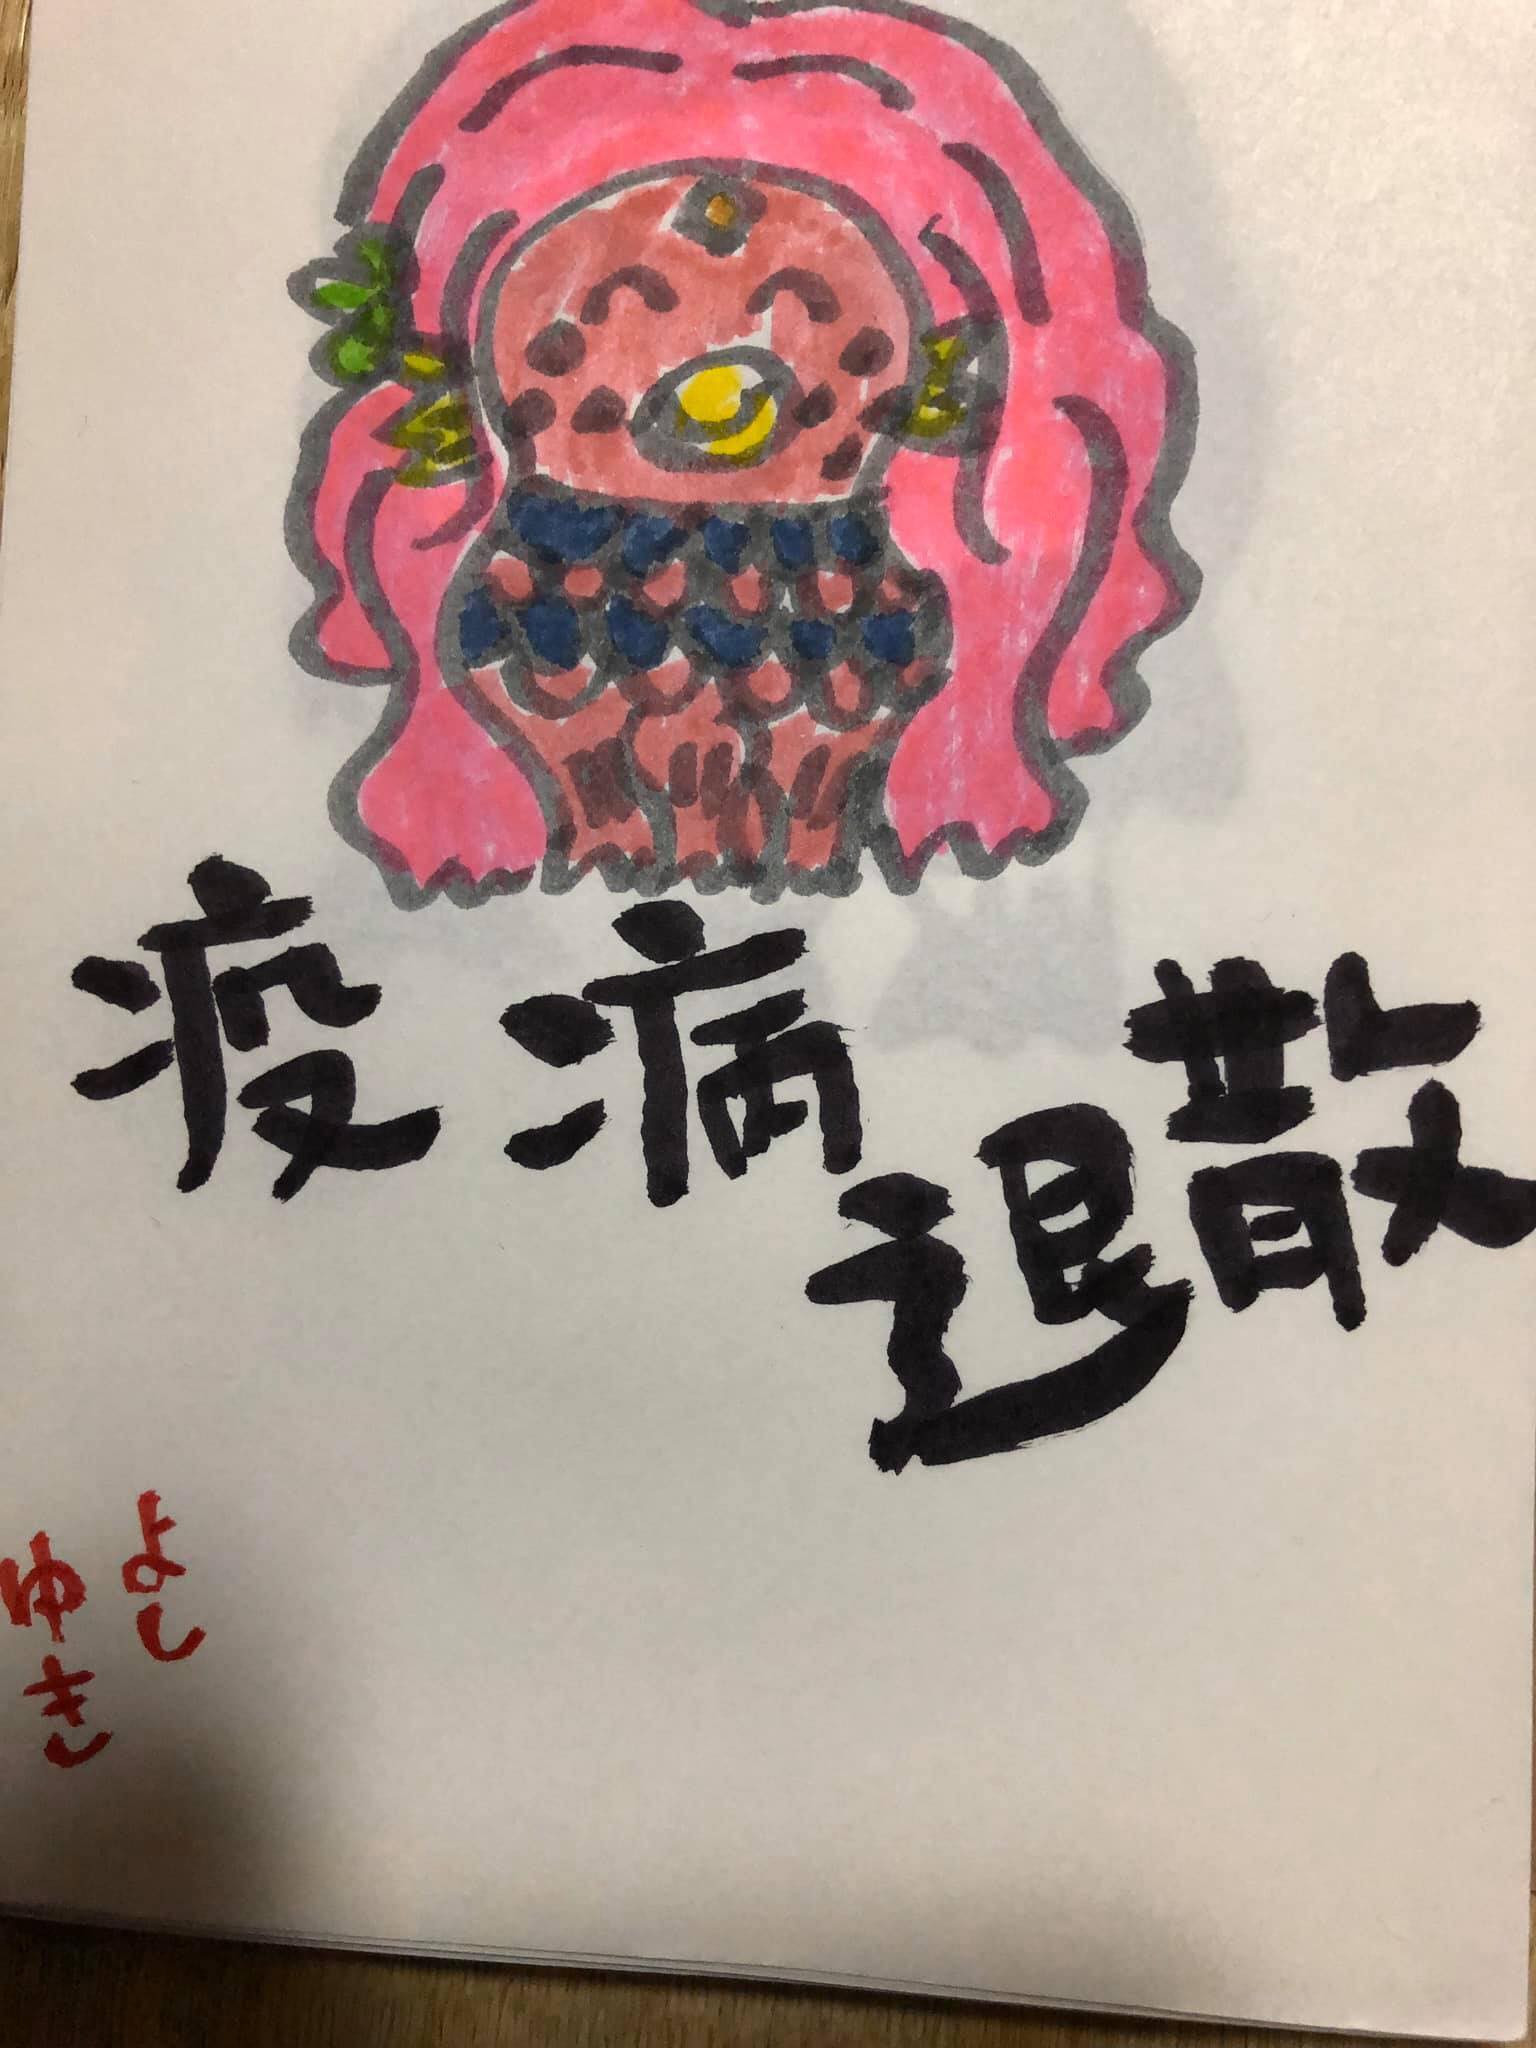 疫病
退散
よし
ゆきし